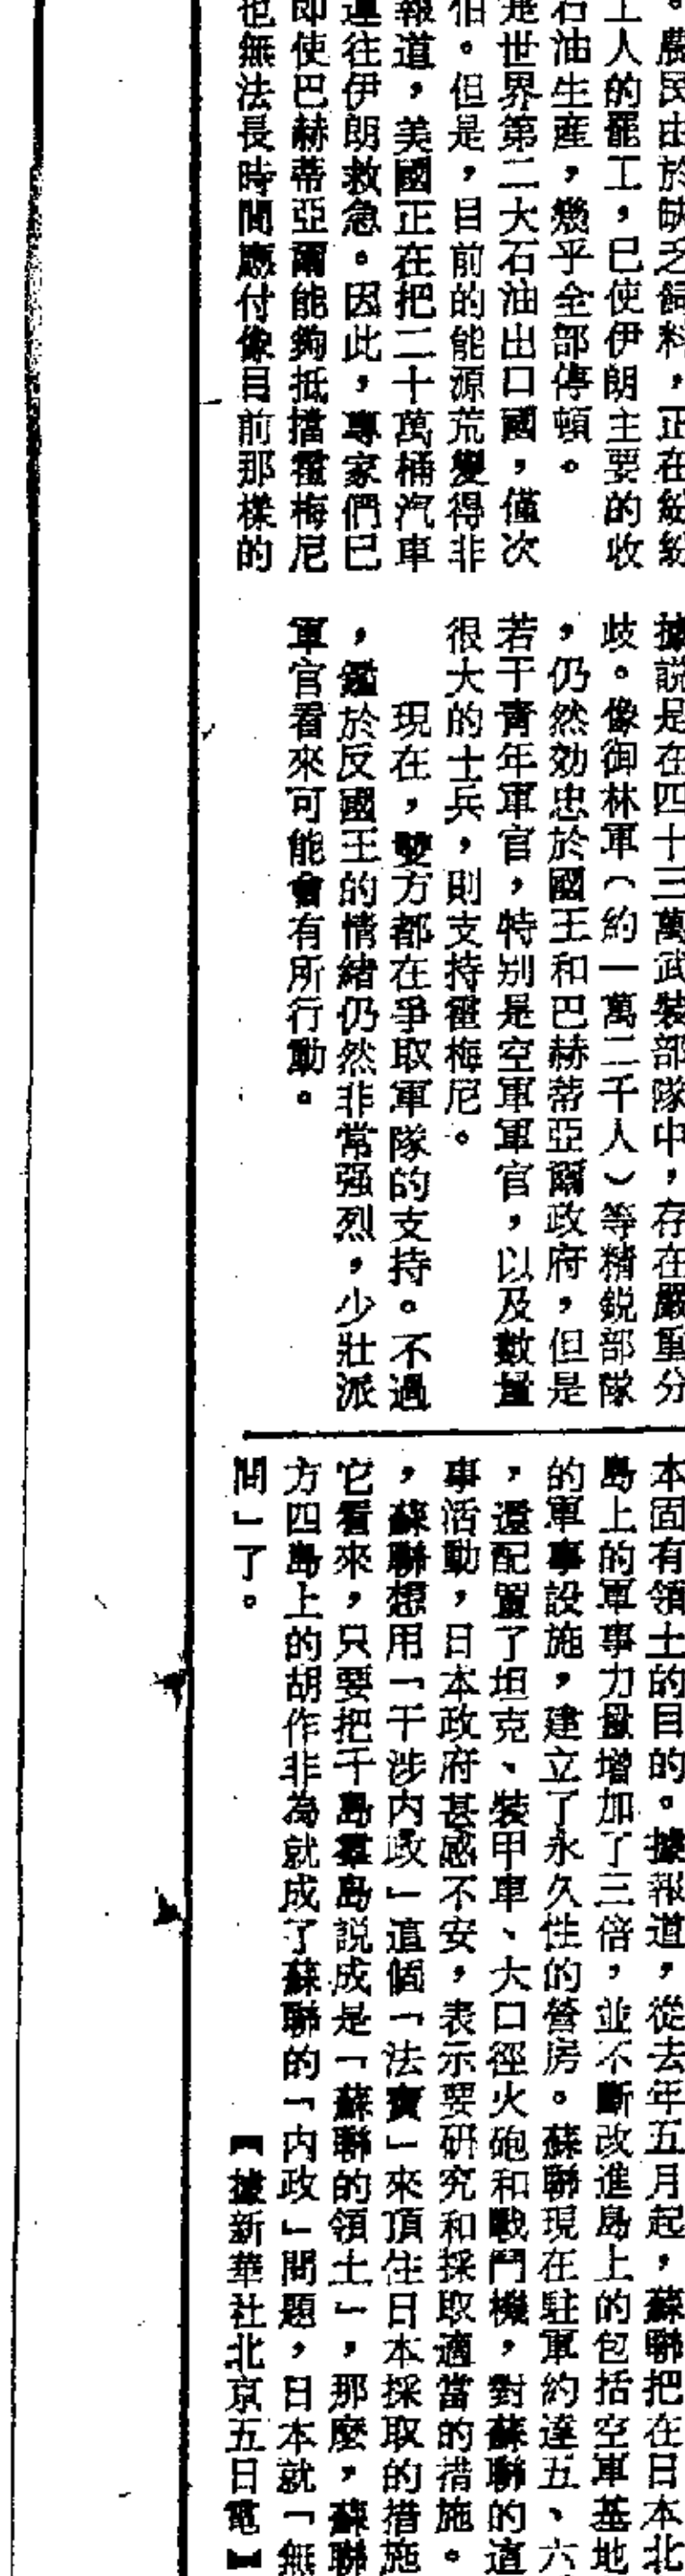 。農民由於缺乏飼料，正在紛紛
工人的罷工，已使伊朗主要的收
石油生產，幾乎全部停頓。
是世界第二大石油出口國，僅次
伯。但是，目前的能源荒變得非
報道，美國正在把二十萬桶汽車
運往伊朗救急。因此，專家們已
即使巴赫蒂亞爾能夠抵擋霍梅尼
也無法長時間應付像目前那樣的
據説是在四十三萬武裝部隊中，存在嚴重分
歧。像御林軍（約一萬二千人）等精鋭部隊
，仍然効忠於國王和巴赫蒂亞爾政府，但是
若干青年軍官，特別是空軍軍官，以及數量
很大的士兵，則支持霍梅尼。
現在，雙方都在爭取軍隊的支持。不過
，鑑於反國王的情緒仍然非常强烈，少壯派
軍官看來可能會有所行動。
本固有領土的目的。據報道，從去年五月起，蘇聯把在日本北
島上的軍事力量增加了三倍，並不斷改進島上的包括空軍基地
的軍事設施，建立了永久性的營房。蘇聯現在駐軍約達五、六
，還配置了坦克、裝甲車、大口徑火砲和戰鬥機，對蘇聯的這
事活動，日本政府甚感不安，表示要研究和採取適當的措施。
，蘇聯想用「干涉内政」這個「法寶」來頂住日本採取的措施
它看來，只要把千島羣島説成是「蘇聯的領土」，那麼，蘇聯
方四島上的胡作非為就成了蘇聯的「内政」問題，日本就「無
問」了。
【據新華社北京五日電】